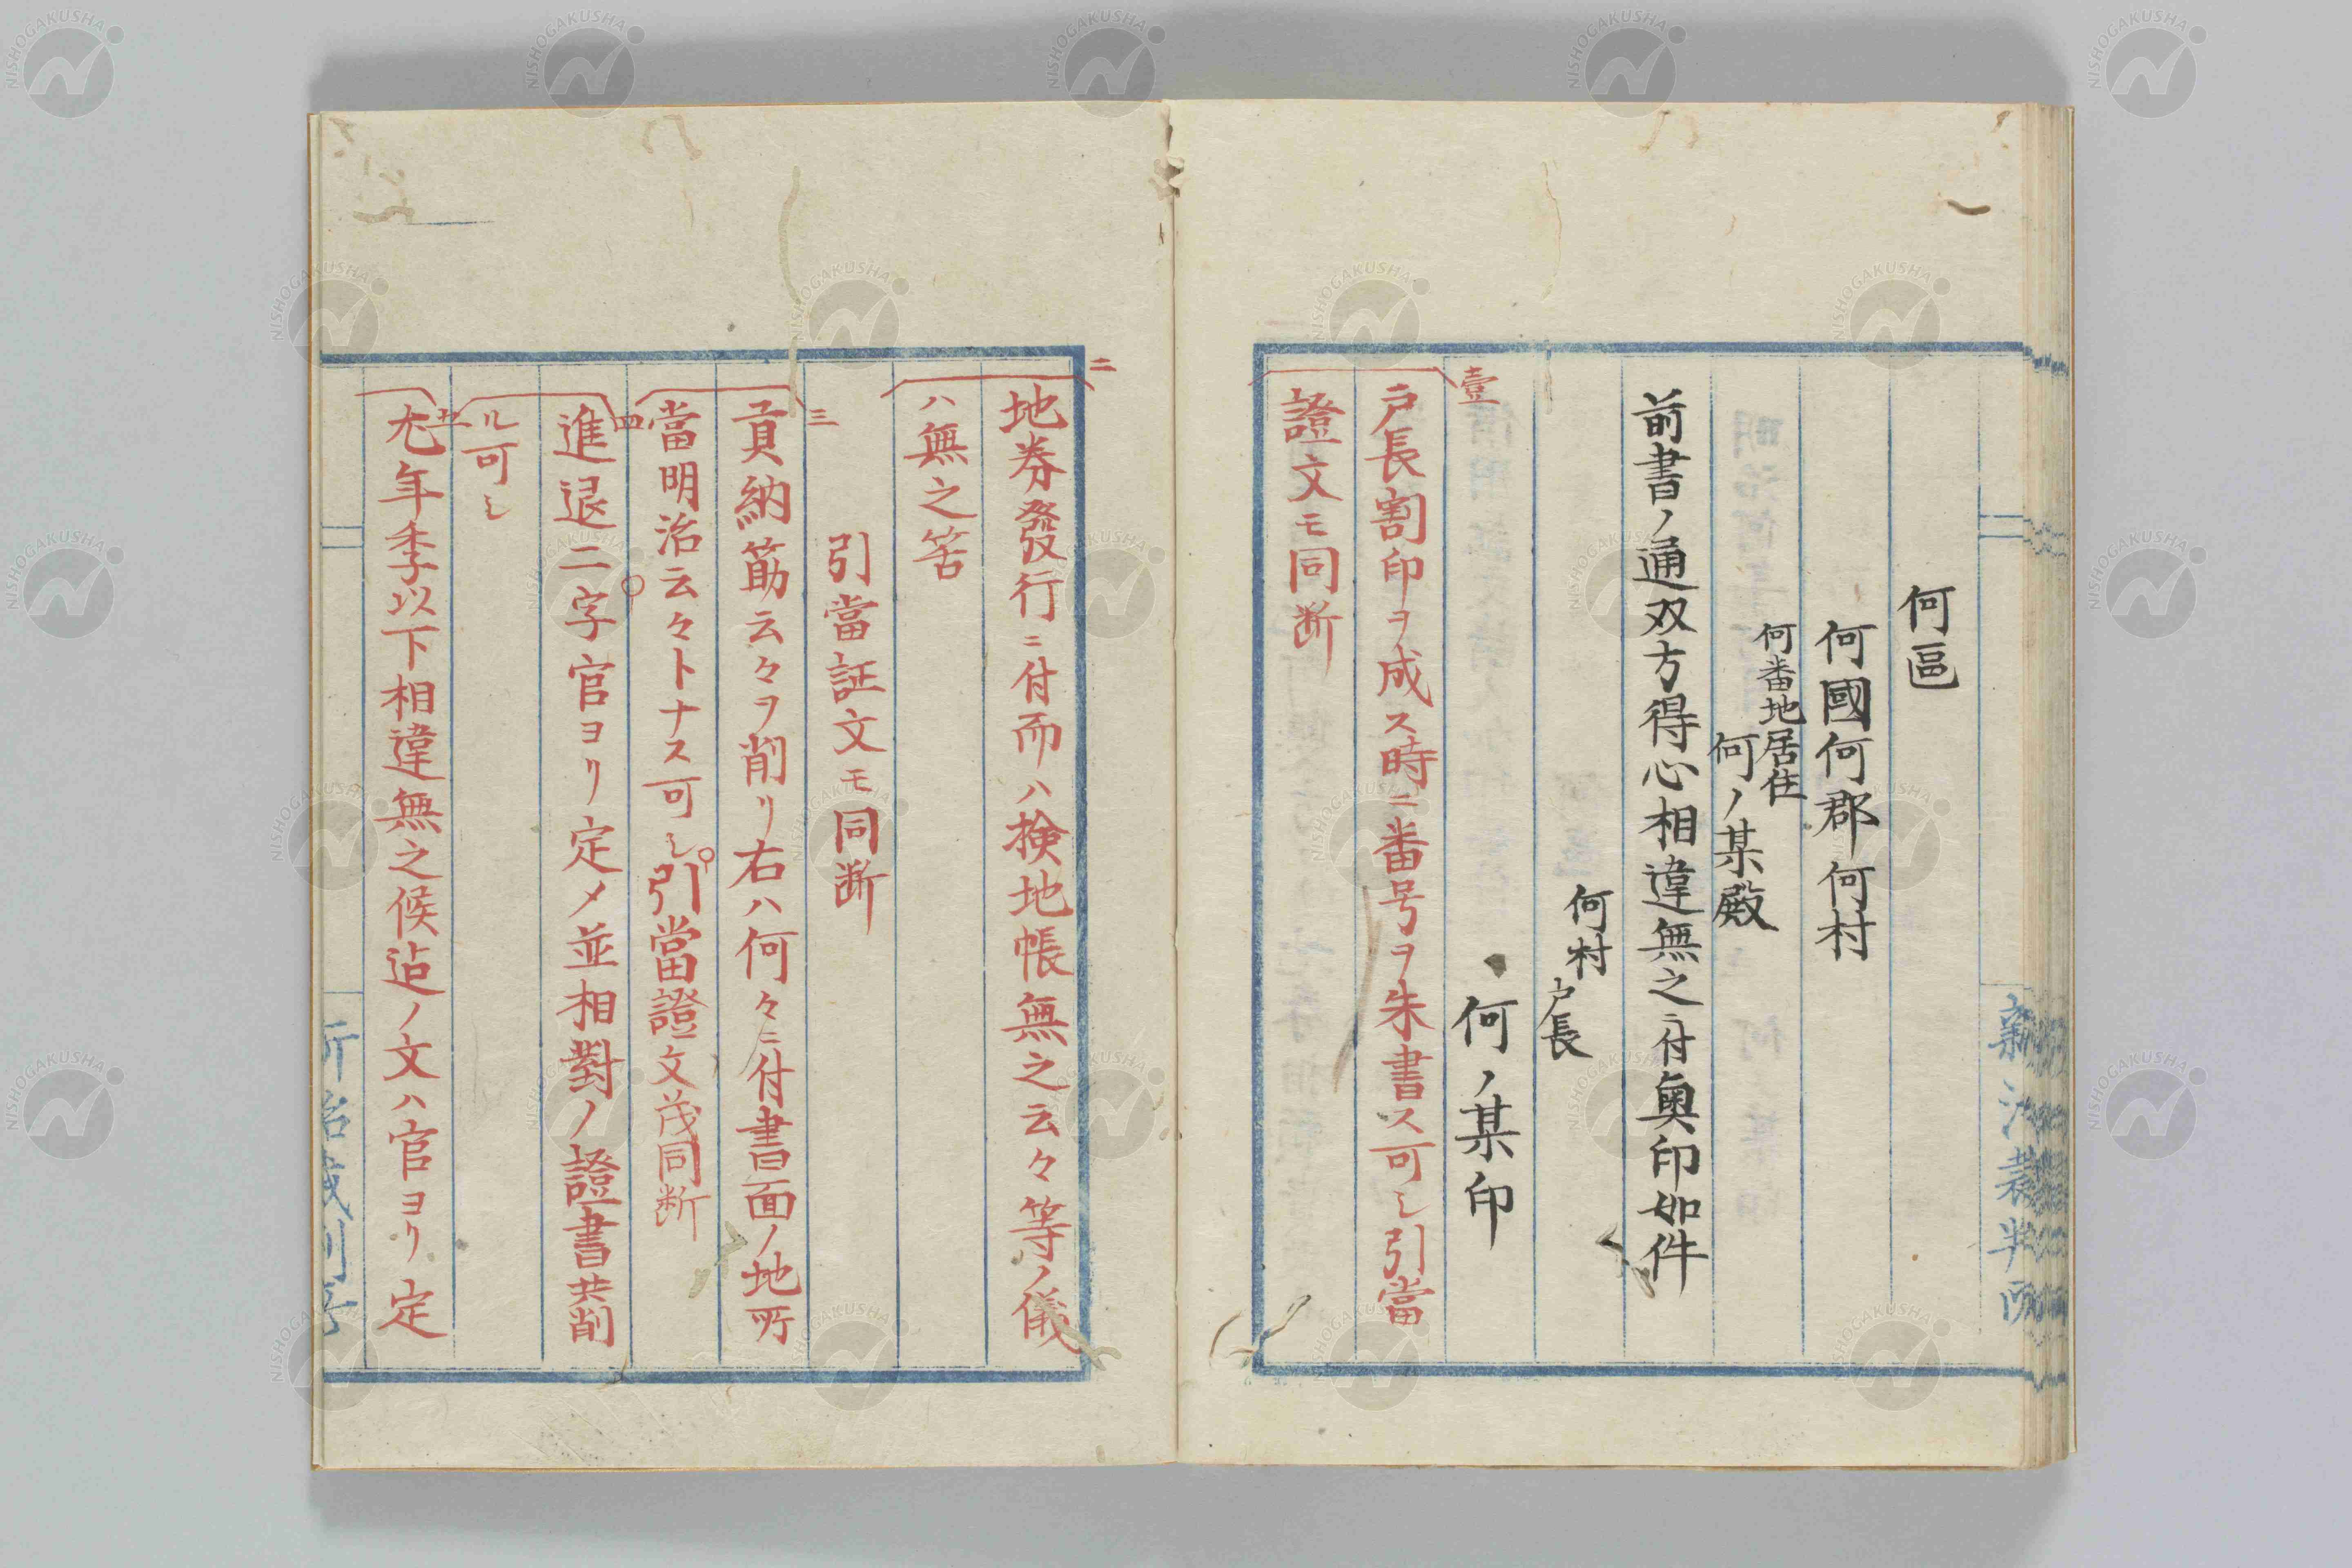 何區
何國何郡何村
何番地居住
何ノ某殿
前書ノ通双方得心相違無之ニ付奥印如件
何村
戸長
何ノ某印
壹
戸長割印ヲ成ス時ニ番号ヲ朱書ス可シ引當
證文モ同断
新治裁判所
二
地券發行ニ付而ハ検地帳無之云々等ノ儀
ハ無之筈
引當証文モ同断
三
貢納筋云々ヲ削リ右ハ何々ニ付書面ノ地所
當明治云々トナス可シ引當證文茂同断
四
進退二字官ヨリ定メ並相對ノ證書共削
ル可シ
五
尤年季以下相違無之候迠ノ文ハ官ヨリ定
NISHOGAKUSHA